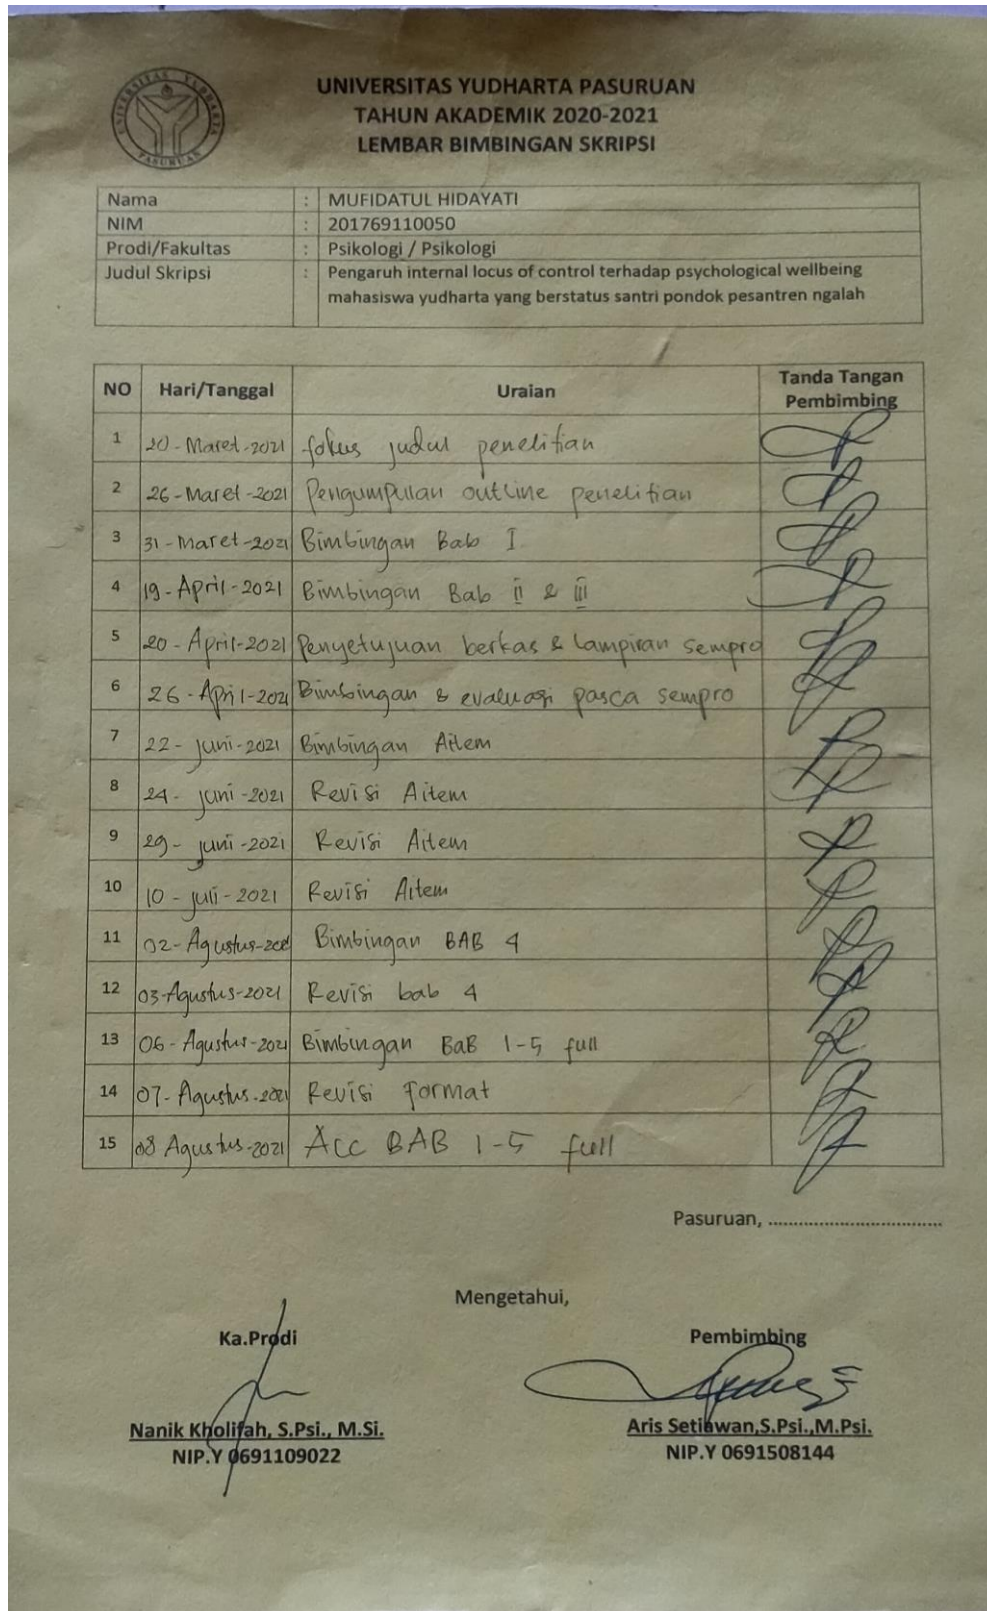 UNIVERSITAS YUDHARTA PASURUAN
UNIVERSITAS YUDHARTA PASURUAN
TAHUN AKADEMIK 2020-2021
LEMBAR BIMBINGAN SKRIPSI
Nama : MUFIDATUL HIDAYATI
NIM : 201769110050
Prodi/Fakultas : Psikologi / Psikologi
Judul Skripsi : Pengaruh internal locus of control terhadap psychological wellbeing
mahasiswa yudharta yang berstatus santri pondok pesantren ngalah
NO Hari/Tanggal Uraian Tanda Tangan
Pembimbing
1 20-Maret-2021 fokus judul penelitian
2 26-Maret-2021 Pengumpulan outline penelitian
3 31-Maret-2021 Bimbingan Bab I
4 19-April-2021 Bimbingan Bab II & III
5 20-April-2021 Penyetujuan berkas & lampiran sempro
6 26-April-2021 Bimbingan & evaluasi pasca sempro
7 22-juni-2021 Bimbingan Aitem
8 24-juni-2021 Revisi Aitem
9 29-juni-2021 Revisi Aitem
10 10-juli-2021 Revisi Aitem
11 02-Agustus-2021 Bimbingan BAB 4
12 03-Agustus-2021 Revisi bab 4
13 06-Agustus-2021 Bimbingan BaB 1-5 full
14 07-Agustus-2021 Revisi Format
15 08 Agustus-2021 Acc BAB 1-5 full
Pasuruan, ..................................
Mengetahui,
Ka.Prodi Pembimbing
Nanik Kholifah, S.Psi., M.Si. Aris Setiawan,S.Psi.,M.Psi.
NIP.Y 0691109022 NIP.Y 0691508144